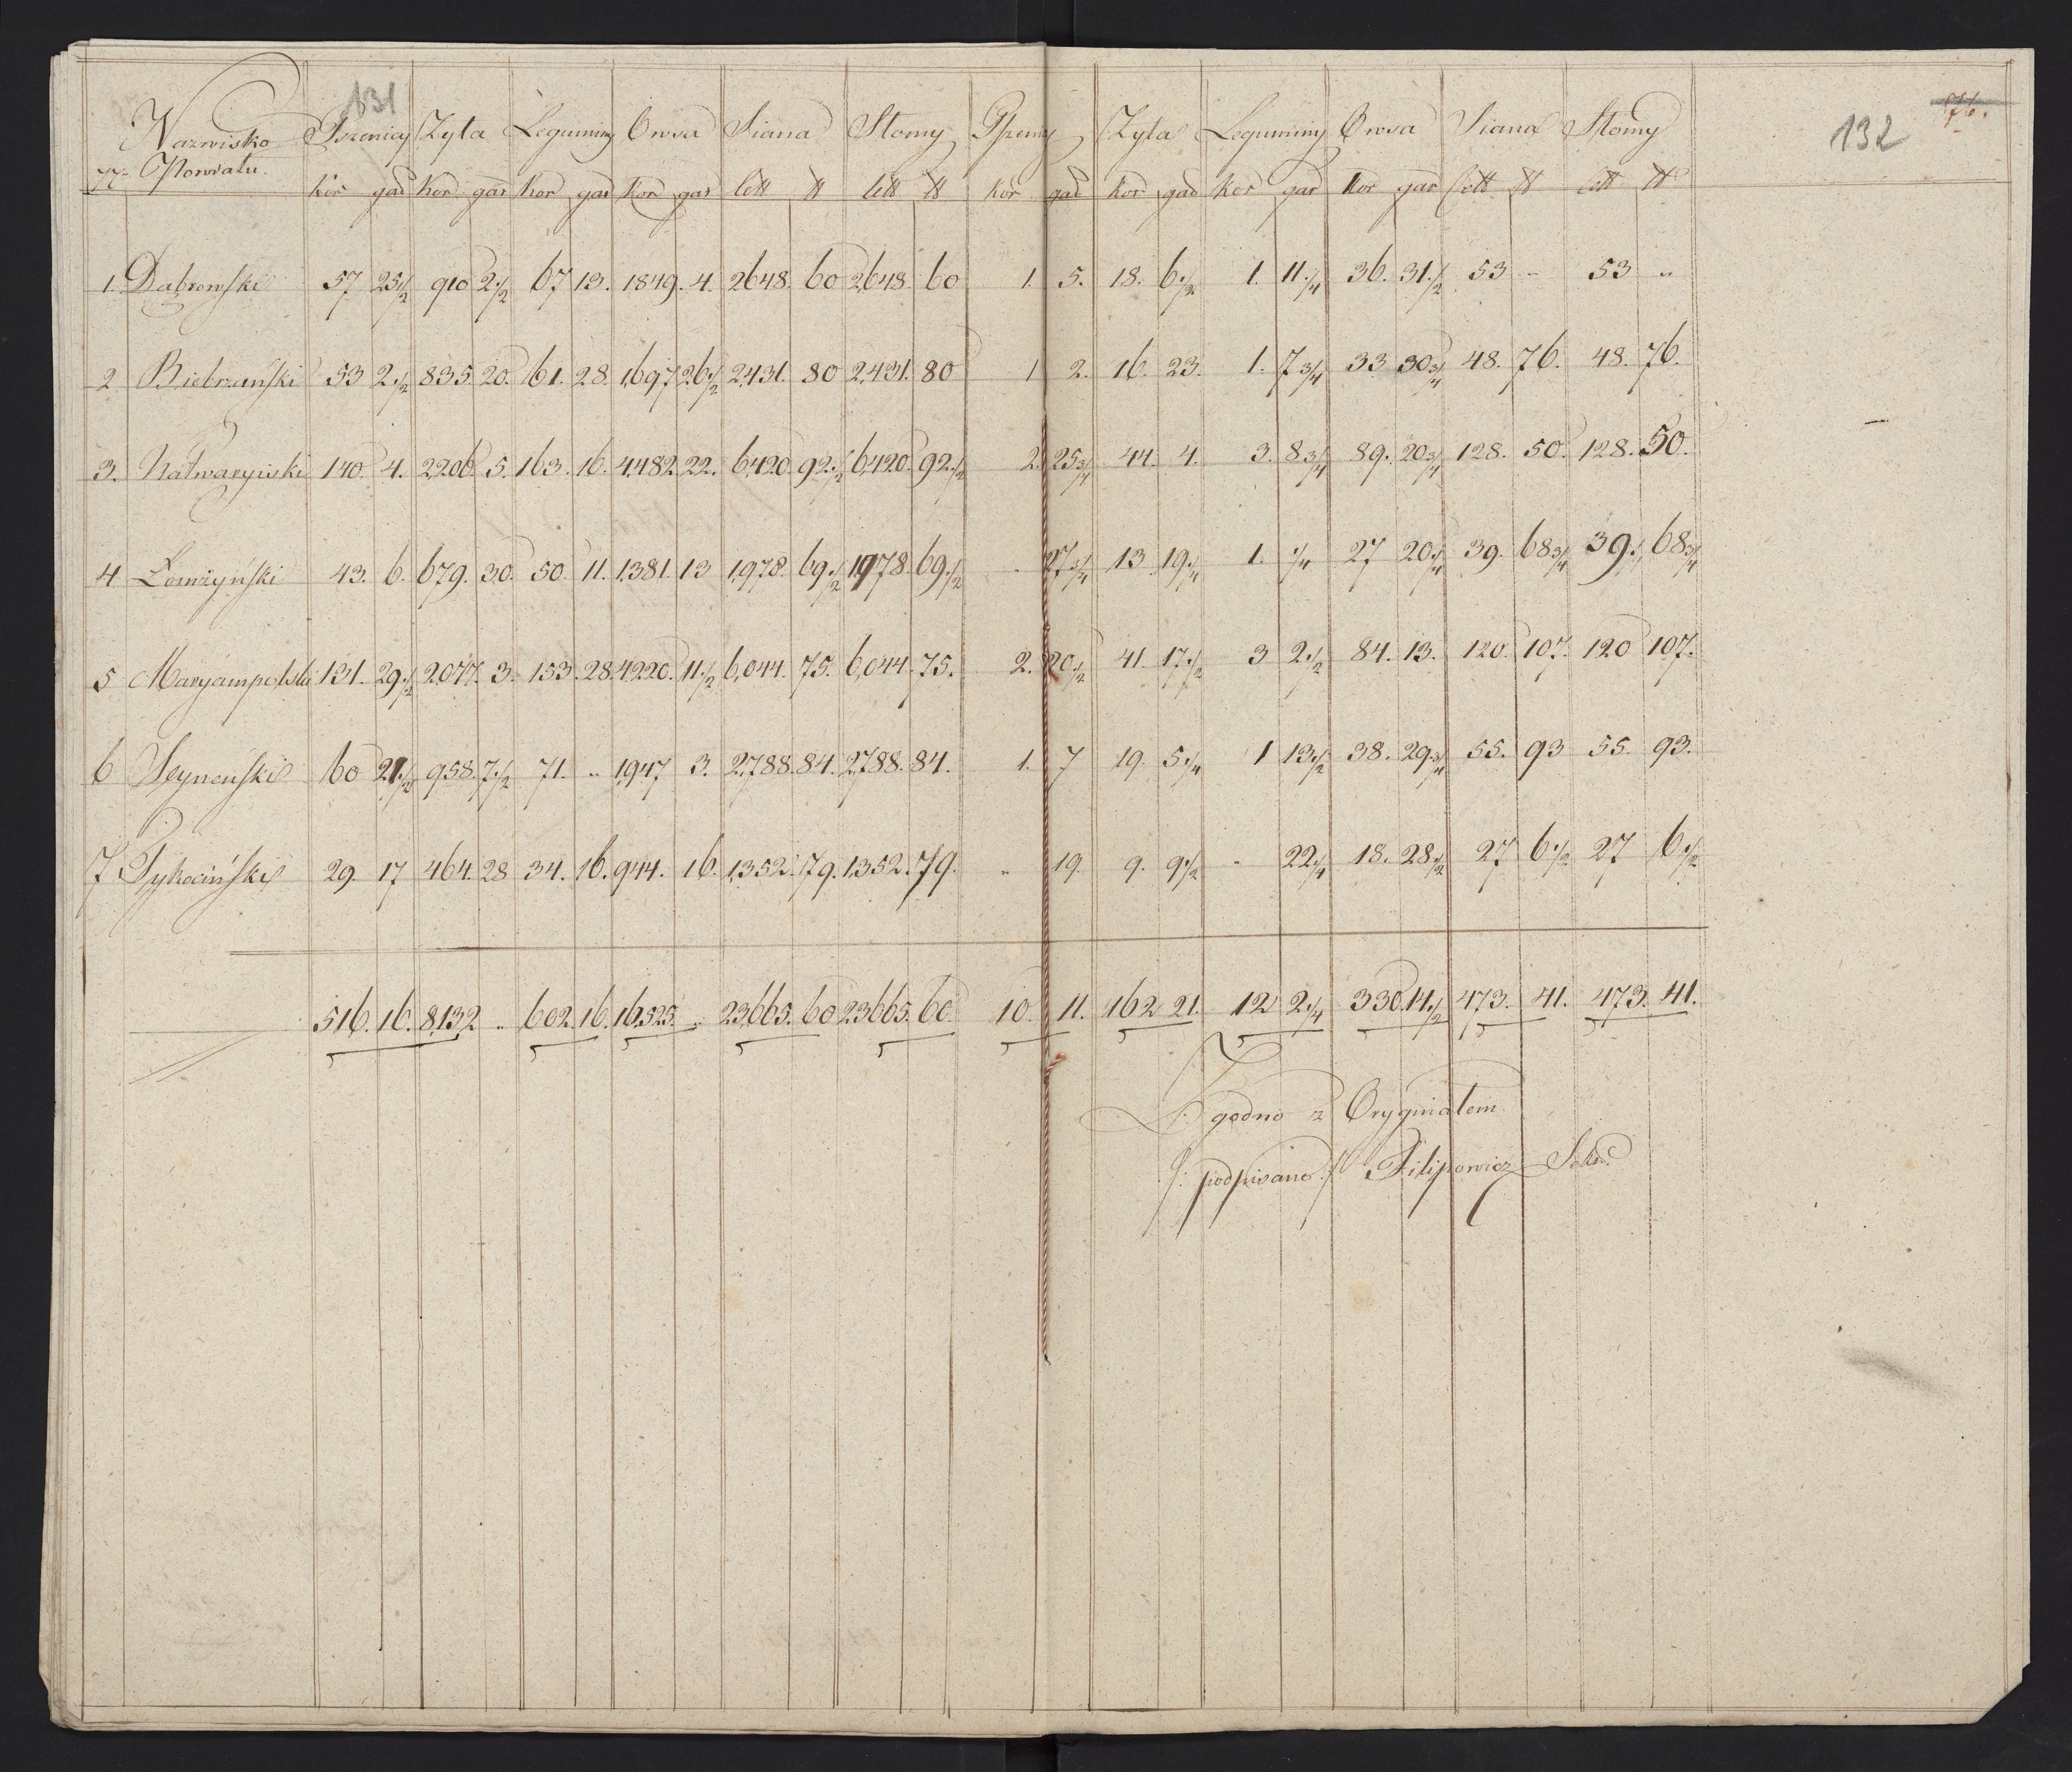 131
132
76.
Nazwisko Pszenicy Zyta Leguminy Owsa Siana Słomy Pszenicy Zyta Leguminy Owsa Siana Słomy
N. Powiatu. kor gar kor gar kor gar kor gar cett ℔ cett ℔ kor gar kor gar kor gar kor gar cett ℔ cett ℔
1. Dąbrowski 57 25 1/2 910 2 1/2 67 13. 1849. 4. 2648. 60 2,648. 60 1. 5. 18. 6 1/2 1. 11 1/4 36. 31 1/2 53 " 53 "
2 Biebrzański 53 2 1/2 835. 20. 61. 28. 1,697 26 1/2 2,431. 80 2,431. 80 1 2. 16. 23. 1. 7 3/4 33 30 3/4 48. 76. 48. 76.
3. Kalwaryiski 140 4. 2,206. 5. 163. 16. 4,482. 22. 6,420. 92 1/2 6,420. 92 1/2 2. 25 3/4 44. 4. 3. 8 3/4 89. 20 3/4 128. 50. 128. 50.
4 Łomżyński 43. 6. 679. 30. 50 11. 1,381. 13 1,978. 69 1/2 1978. 69 1/2 " 27 3/4 13 19 1/4 1. 1/4 27 20 1/4 39. 68 3/4 39. 68 3/4
5 Maryampolski 131. 29 1/2 2,077. 3. 153. 28. 4220. 11 1/2 6,044. 75. 6,044. 75. 2. 20 1/2 41. 17 1/2 3 2 1/2 84. 13. 120 107. 120 107.
6 Seyneński 60 21 1/2 958. 7 1/2 71. " 1,947 3. 2,788. 84. 2,788. 84. 1. 7 19. 5 1/4 1 13 1/2 38. 29 3/4 55. 93 55. 93.
7 Tykociński 29. 17 464. 28 34. 16. 944. 16. 1,352. 79. 1,352. 79. " 19. 9. 9 1/2 " 22 1/4 18. 28 1/2 27 6 1/2 27 6 1/2
516. 16. 8,132 " 602. 16. 16,525. " 23,665. 60 23,665. 60 10. 11. 162 21. 12 2 1/4 330. 14 1/2 473. 41. 473. 41.
Zgodno z Oryginałem
/: podpisano :/ Filipowicz Sekr.